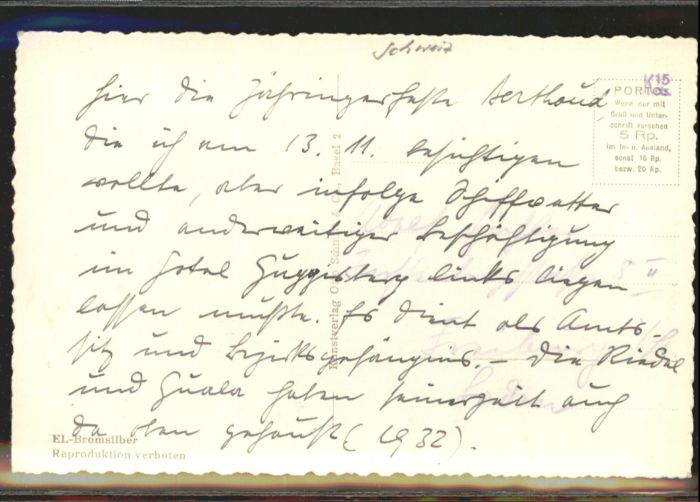 Schweiz
K15
PORTO:
Wenn nur mit
Gruß und Unter-
schrift versehen
5 Rp.
im In- u. Ausland,
sonst 10 Rp.
bezw. 20 Rp.
hier die Zähringerfeste Berthoud,
die ich am 13. 11. besichtigen
wollte, aber infolge
und anderweitiger Beschäftigung
im Hotel Guggisberg links liegen
lassen mußte. Es dient als Amts-
sitz und Bezirksgefängnis. – Die Riedel
und Guala haben seinerzeit auch
da oben gehaust (1932).
Kunstverlag
Basel 2
EL-Bromsilber
Reproduktion verboten